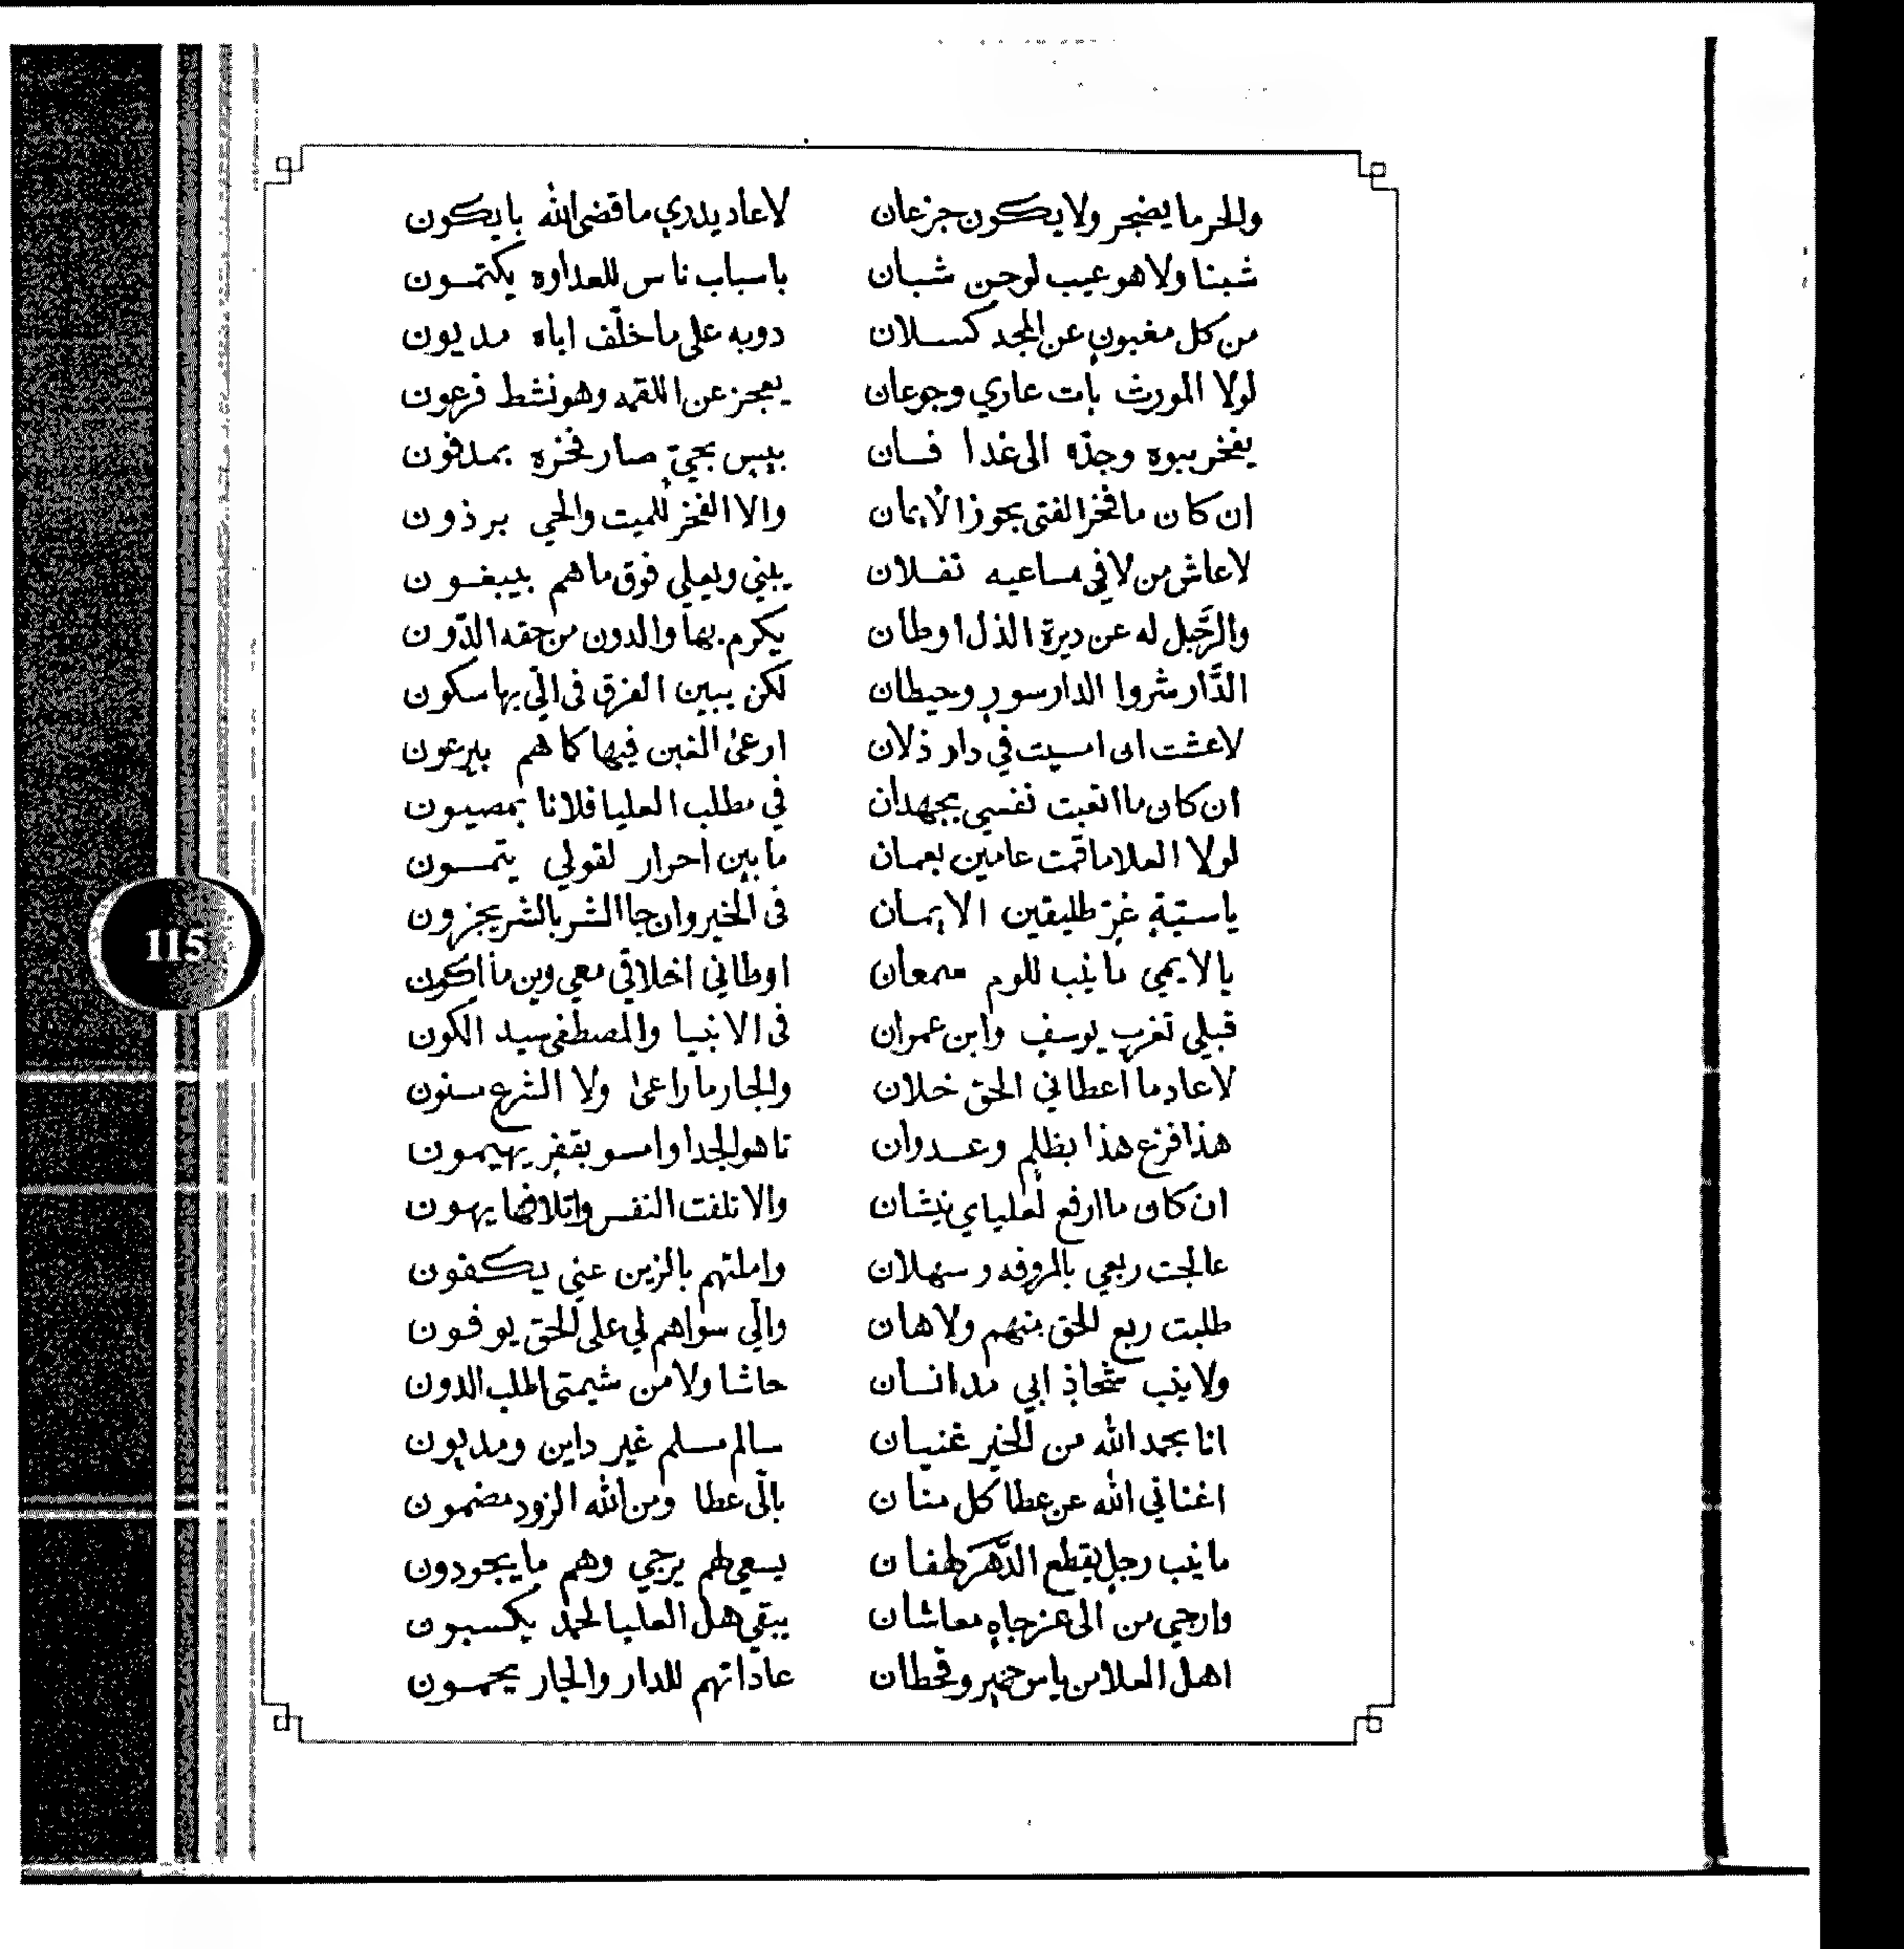 والحر ما يضجر ولا يكون جزعان لا عاد يدري ما قضى الله بايكون
شبنا ولا هو عيب لوحن شبان باسباب ناس للعداوه يكتمون
من كل مغبونٍ عن المجد كسلان دوبه على ما خلّف اباه مديون
لولا المورث بات عاري وجوعان يعجز عن اللقمه وهو نشط فرعون
يفخر ببوه وجدّه الى غدا فان بيس بحيٍّ صار فخره بمدفون
ان كان ما فخر الفتى بجوز الايمان والا الفخر للميت والحي برذون
لا عاش من لا في مساعيه نفلان يبني ويعلي فوق ما هم بيبغون
والرَّجل له عن ديرة الذل اوطان يكرم بها والدون من حقه الدّون
الدَّار مثروا الدار سورٍ وحيطان لكن يبين الفرق في الّي بها سكون
لا عشت ان امسيت في دار ذلان ارعى الغبن فيها كما هم بيرعون
ان كان ما اتعبت نفسي بجهدان في مطلب العليا فلانا بمصيون
لولا العلا ما قمت عامين بعمان ما بين احرار لقولي يتمون
يا ستيةٍ غرٍّ طليقين الايمان في الخير وان جا الشر بالشر يجزون
يا لايمي ما نيب للوم سمعان اوطاني اخلاقي معي وين ما اكون
قبلي تغرب يوسفٍ وابن عمران في الانبيا والمصطفى سيد الكون
لا عاد ما اعطاني الحق خلان والجار ما راعى ولا الشرع مسنون
هذا فزع هذا بظلمٍ وعدوان تاهوا لجدا وامسو بقفرٍ يهيمون
ان كان ما ارفع لعلياي نيشان والا تلفت النفس واتلافها يهون
عالجت ربعي بالمروفه وسهلان واملتهم بالزين عني يكفون
طلبت ربع الحق منهم ولا هان والّي سواهم لي على الحق يوفون
ولا نيب شحاذٍ ابي مد انسان حاشا ولا من شيمتي اطلب الدون
انا بحمد الله من الخير غنيان سالم مسلم غير داين ومديون
اغناني الله عن عطا كل منان بالّي عطا ومن الله الزود مضمون
ما نيب رجلٍ يقطع الدَّهر لهفان يسعى لهم يرجي وهم ما يجودون
وارجي من الى عز جاهٍ معاشان يبقي هل العليا لحمدٍ يكسبون
اهل العلا من ياس خيرٍ وقحطان عاداتهم للدار والجار يحمون
115